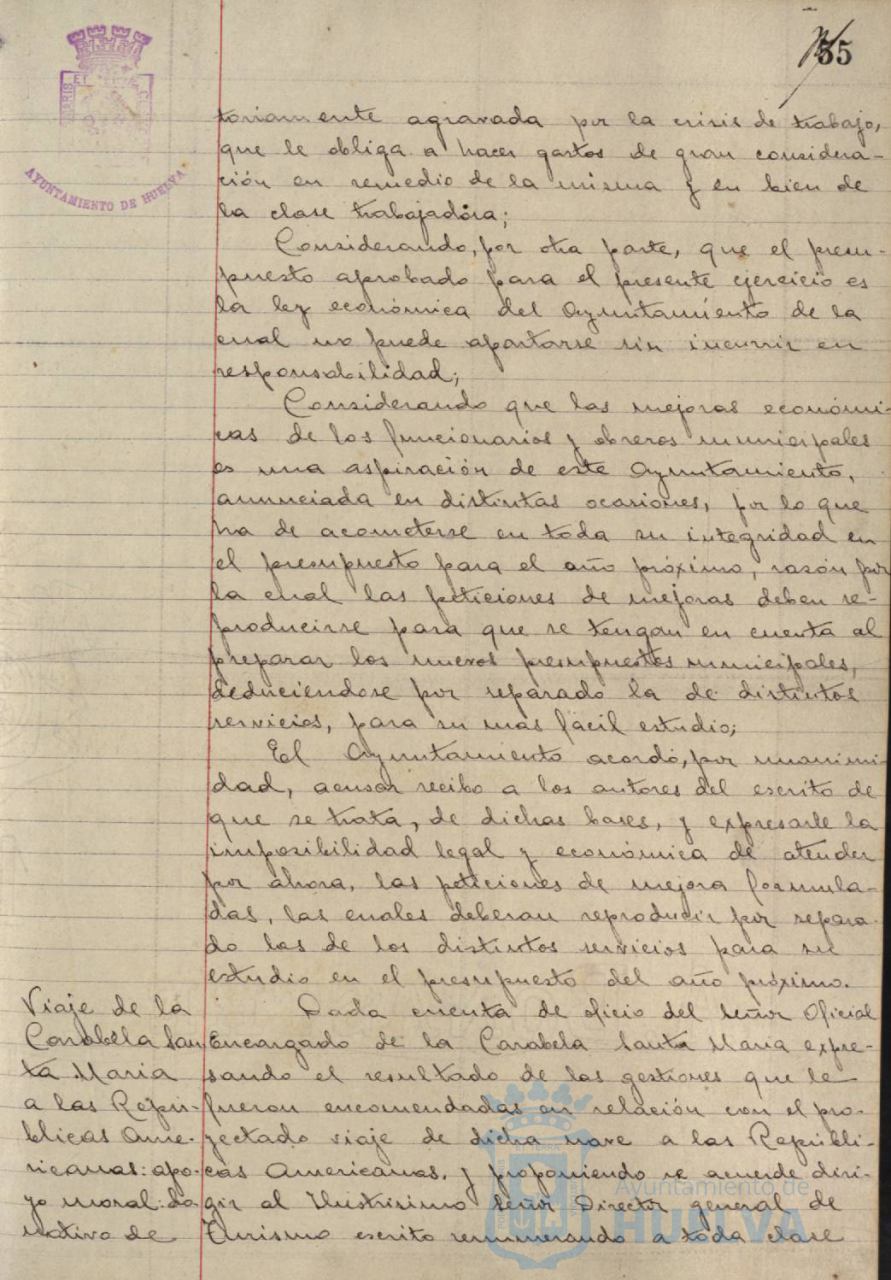 55
AYUNTAMIENTO DE HUELVA
toriamente agravada por la crisis de trabajo,
que le obliga a hacer gastos de gran considera-
ción en remedio de la misma y en bien de
la clase trabajadora;
Considerando, por otra parte, que el presu-
puesto aprobado para el presente ejercicio es
la ley económica del Ayuntamiento de la
cual no puede apartarse sin incurrir en
responsabilidad;
Considerando que las mejoras económi-
cas de los funcionarios y obreros municipales
es una aspiración de este Ayuntamiento,
anunciada en distintas ocasiones, por lo que
ha de acometerse en toda su integridad en
el presupuesto para el año próximo, razón por
la cual las peticiones de mejoras deben re-
producirse para que se tengan en cuenta al
preparar los nuevos presupuestos municipales,
deduciéndose por separado la de distintos
servicios, para su mas fácil estudio;
El Ayuntamiento acordó, por unanimi-
dad, acusar recibo a los autores del escrito de
que se trata, de dichas bases, y expresarle la
imposibilidad legal y económica de atender
por ahora, las peticiones de mejora formula-
das, las cuales deberan reproducir por separa-
do las de los distintos servicios para su
estudio en el presupuesto del año próximo.
Viaje de la
Carabela San
ta Maria
a las Repú-
blicas Ame-
ricanas: apo-
yo moral: do
nativo de
Dada cuenta de oficio del señor Oficial
Encargado de la Carabela Santa Maria expre-
sando el resultado de las gestiones que le
fueron encomendadas en relación con el pro-
yectado viaje de dicha nave a las Repúbli-
cas Americanas, y proponiendo se acuerde diri-
gir al Ilustrisimo señor Director general de
Turismo escrito renunciando a toda clase
Ayuntamiento de
HUELVA